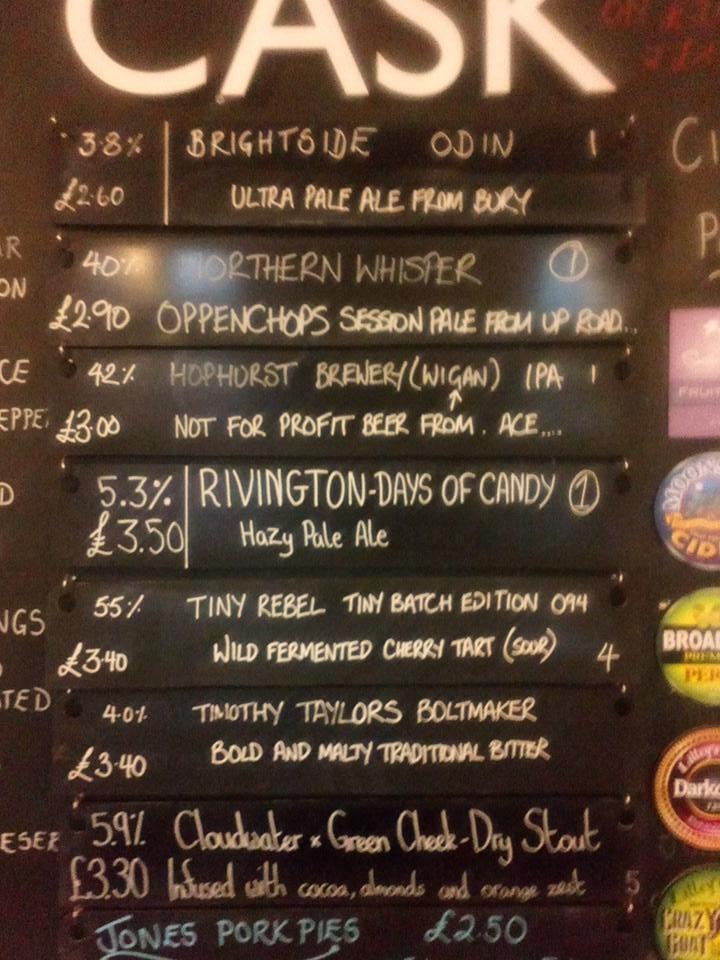 CASK
3.8% BRIGHTSIDE ODIN 1
£2.60 ULTRA PALE ALE FROM BURY
4.0% NORTHERN WHISPER 1
£2.90 OPPENCHOPS SESSION PALE FROM UP ROAD...
4.2% HOPHURST BREWERY (WIGAN) IPA 1
£3.00 NOT FOR PROFIT BEER FROM. ACE....
5.3% RIVINGTON-DAYS OF CANDY 1
£3.50 Hazy Pale Ale
5.5% TINY REBEL TINY BATCH EDITION 094
£3.40 WILD FERMENTED CHERRY TART (SOUR) 4
4.0% TIMOTHY TAYLORS BOLTMAKER
£3.40 BOLD AND MALTY TRADITIONAL BITTER
5.9% Cloudwater x Green Cheek-Dry Stout
£3.30 Infused with cocoa, almonds and orange zest 5
JONES PORK PIES £2.50